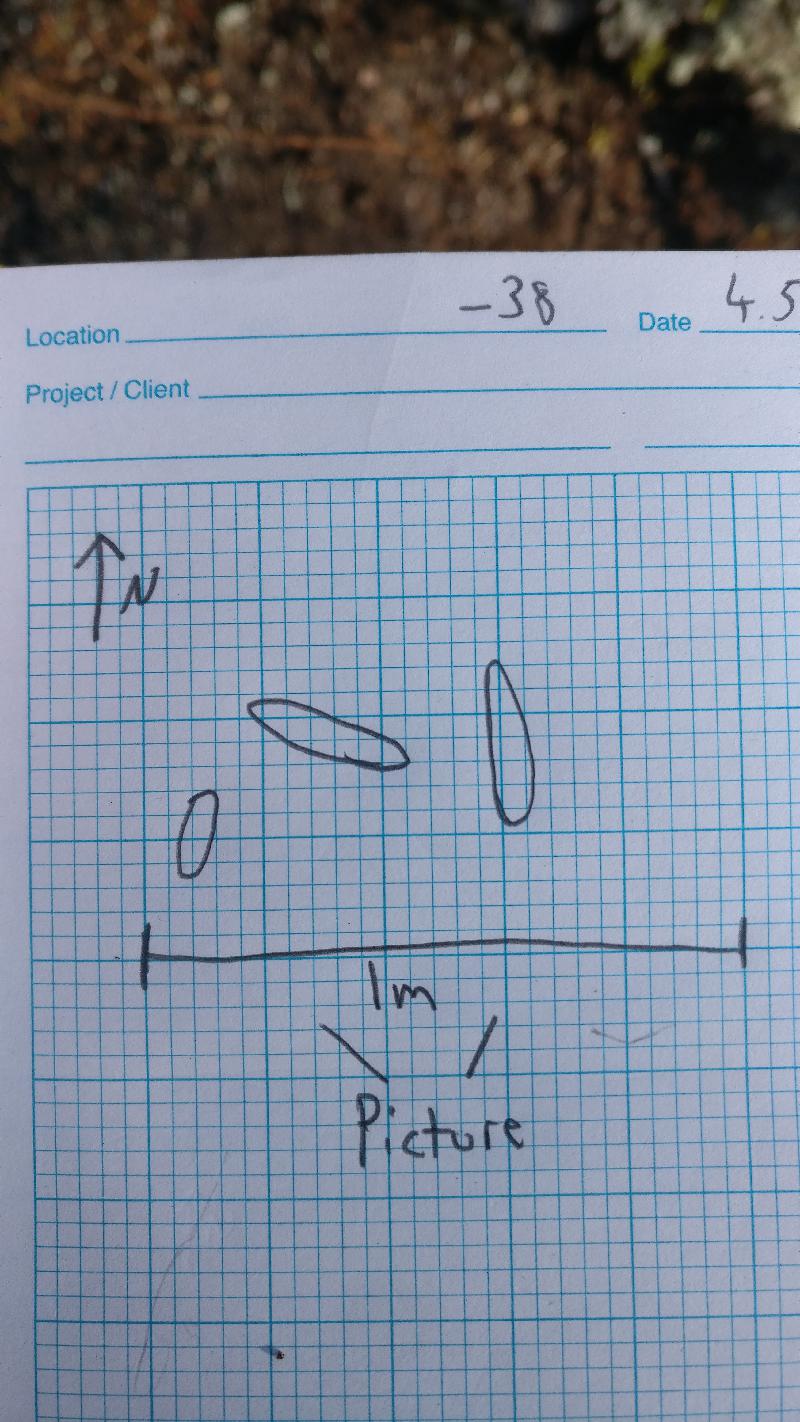 Location -38 Date 4.5
Project / Client
N
1m
Picture